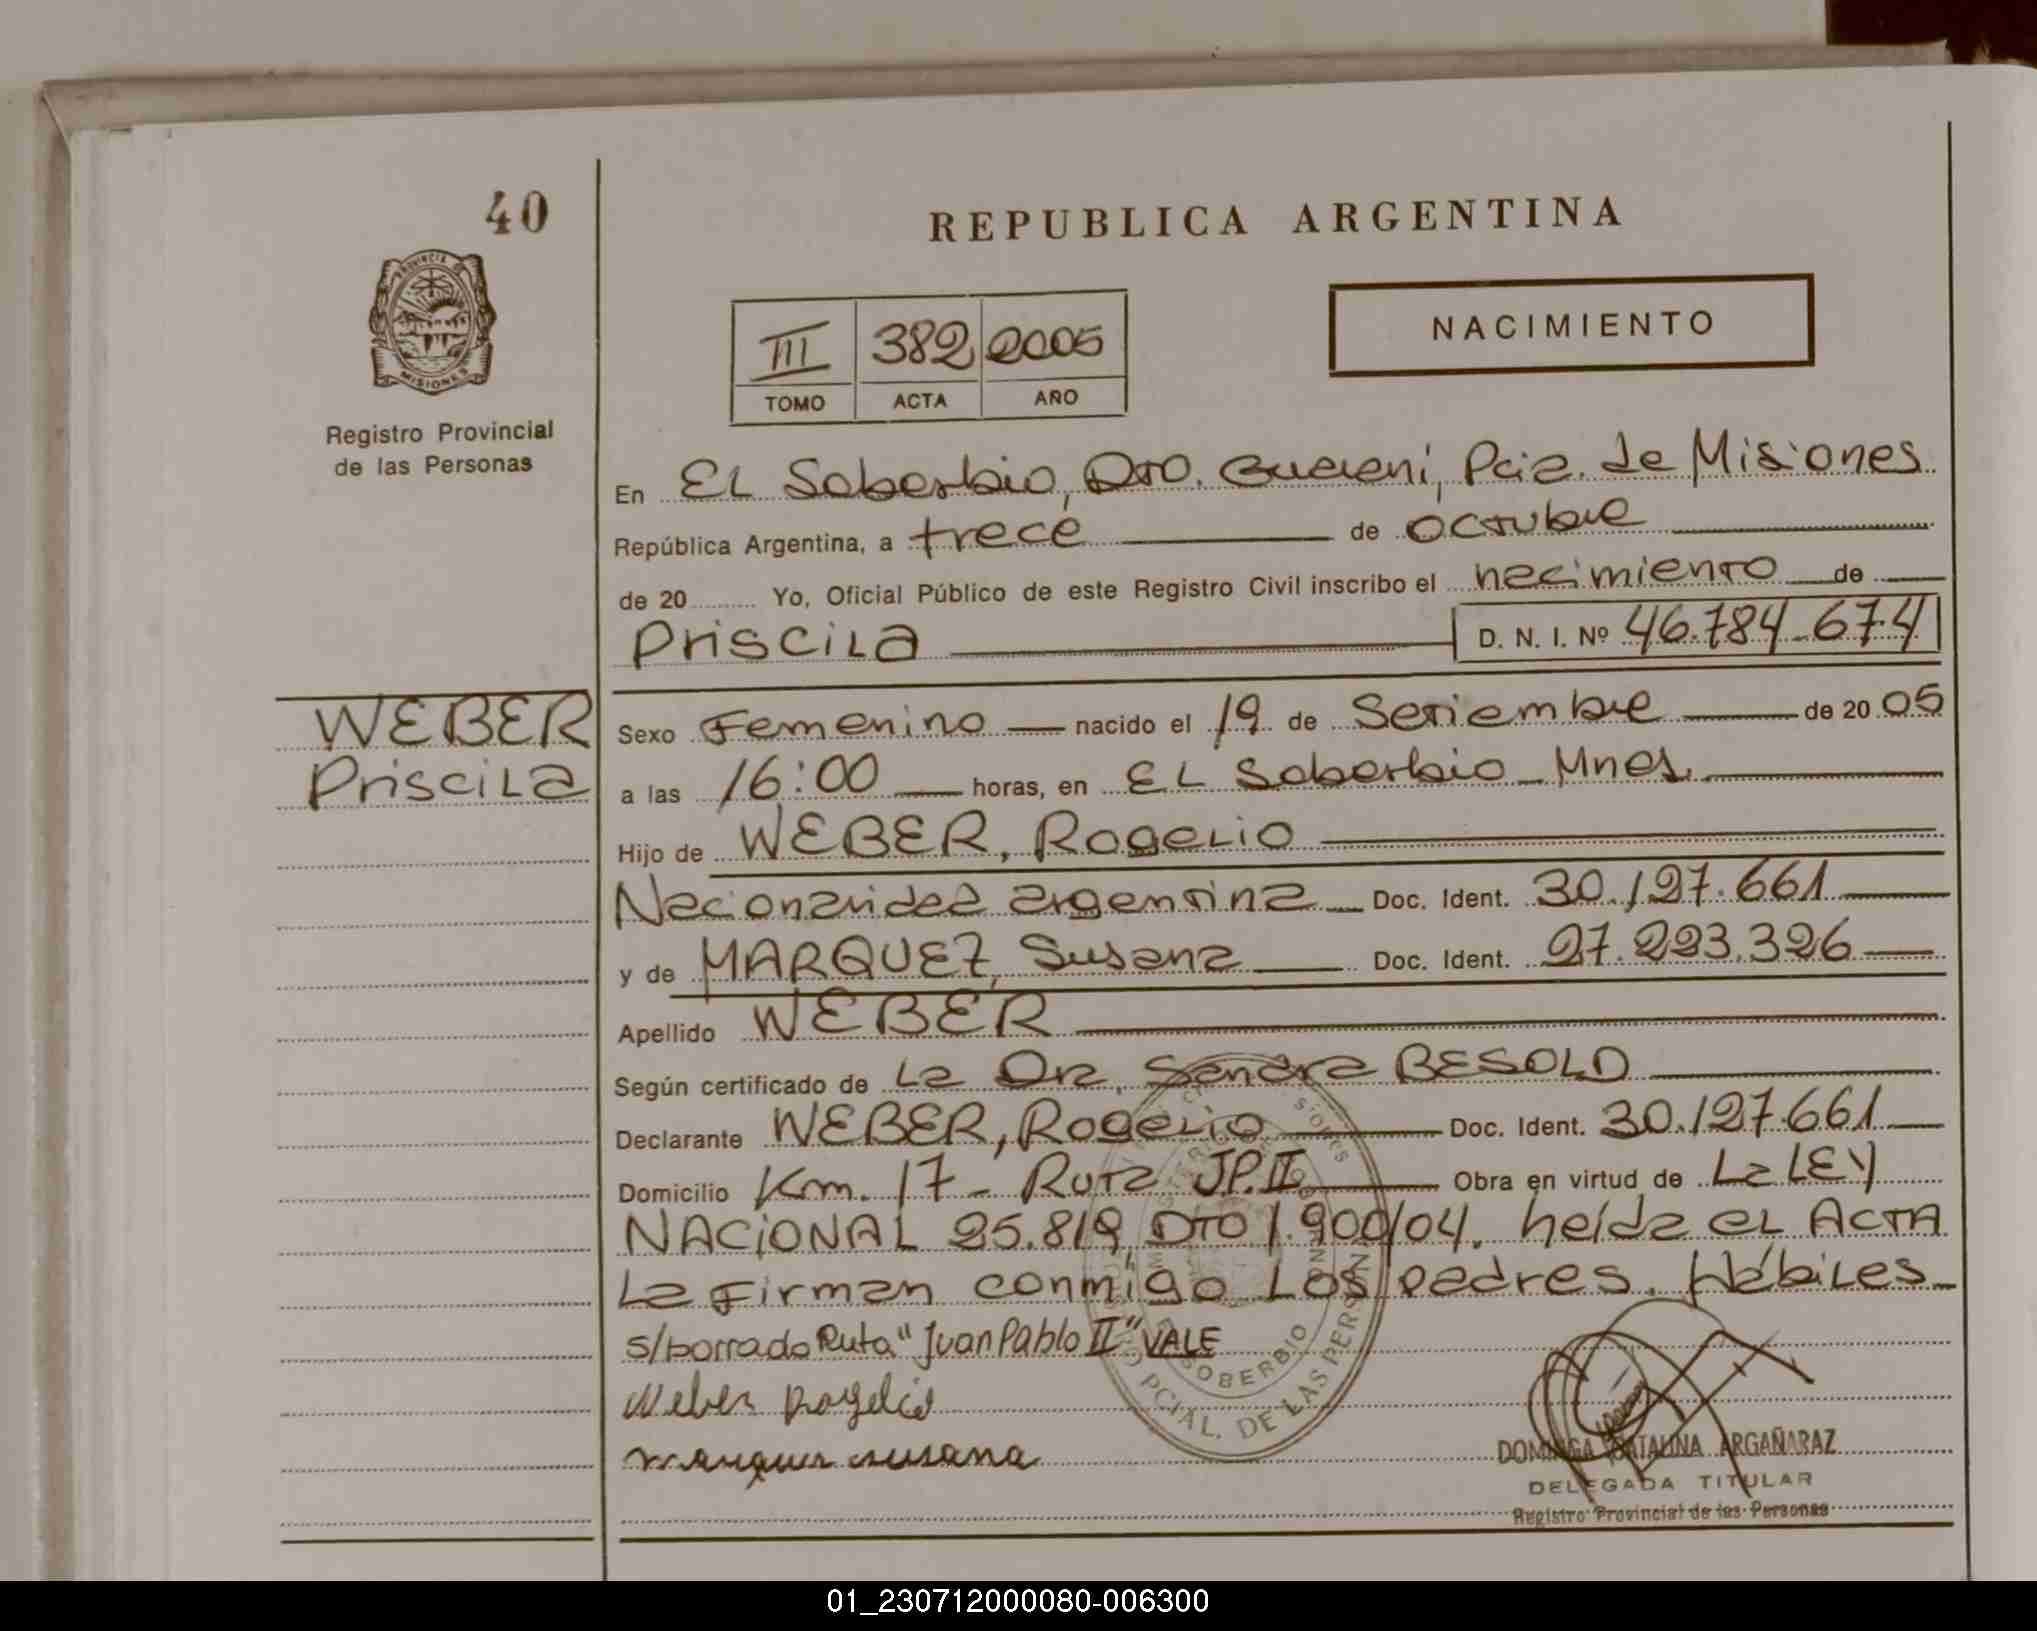 40
REPUBLICA ARGENTINA
PROVINCIA DE
MISIONES
Registro Provincial
de las Personas
III 382 2005
TOMO ACTA AÑO
NACIMIENTO
En EL Soberbio, Dto. Guarani, Pcia. de Misiones
República Argentina, a trece de octubre
de 20 Yo, Oficial Público de este Registro Civil inscribo el nacimiento de
Priscila D. N. I. Nº 46.784.674
WEBER
Priscila
Sexo Femenino nacido el 19 de Setiembre de 2005
a las 16:00 horas, en EL Soberbio Mnes.
Hijo de WEBER, Rogelio
Nacionalidad argentina Doc. Ident. 30.127.661
y de MARQUEZ, Susana Doc. Ident. 27.223.326
Apellido WEBER
Según certificado de La Dra. Sandra BESOLD
Declarante WEBER, Rogelio Doc. Ident. 30.127.661
Domicilio Km. 17 - Ruta J.P.II Obra en virtud de La LEY
NACIONAL 25.819, DTO 1.900/04. heida el ACTA
La Firman conmigo Los padres. Hábiles
s/borrado Ruta "Juan Pablo II" VALE
Weber Rogelio
Marquez susana
SOBERBIO
PCIAL. DE LAS PERSON
DOMINGA CATALINA ARGAÑARAZ
DELEGADA TITULAR
Registro Provincial de las Personas
01_230712000080-006300